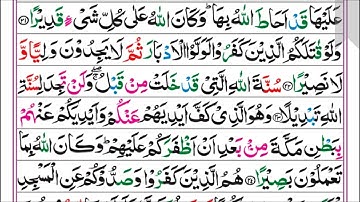 عَلَيۡهَا قَدۡ اَحَاطَ اللّٰهُ بِهَا ؕ وَكَانَ اللّٰهُ عَلٰى كُلِّ شَىۡءٍ قَدِيۡرًا ﴿۲۱﴾
وَلَوۡ قَاتَلَكُمُ الَّذِيۡنَ كَفَرُوۡا لَوَلَّوُا الۡاَدۡبَارَ ثُمَّ لَا يَجِدُوۡنَ وَلِيًّا وَّ
لَا نَصِيۡرًا ﴿۲۲﴾ سُنَّةَ اللّٰهِ الَّتِىۡ قَدۡ خَلَتۡ مِنۡ قَبۡلُ ۖۚ وَلَنۡ تَجِدَ لِسُنَّةِ
اللّٰهِ تَبۡدِيۡلًا ﴿۲۳﴾ وَهُوَ الَّذِىۡ كَفَّ اَيۡدِيَهُمۡ عَنۡكُمۡ وَاَيۡدِيَكُمۡ عَنۡهُمۡ
بِبَطۡنِ مَكَّةَ مِنۡۢ بَعۡدِ اَنۡ اَظۡفَرَكُمۡ عَلَيۡهِمۡ ؕ وَكَانَ اللّٰهُ بِمَا
تَعۡمَلُوۡنَ بَصِيۡرًا ﴿۲۴﴾ هُمُ الَّذِيۡنَ كَفَرُوۡا وَصَدُّوۡكُمۡ عَنِ الۡمَسۡجِدِ